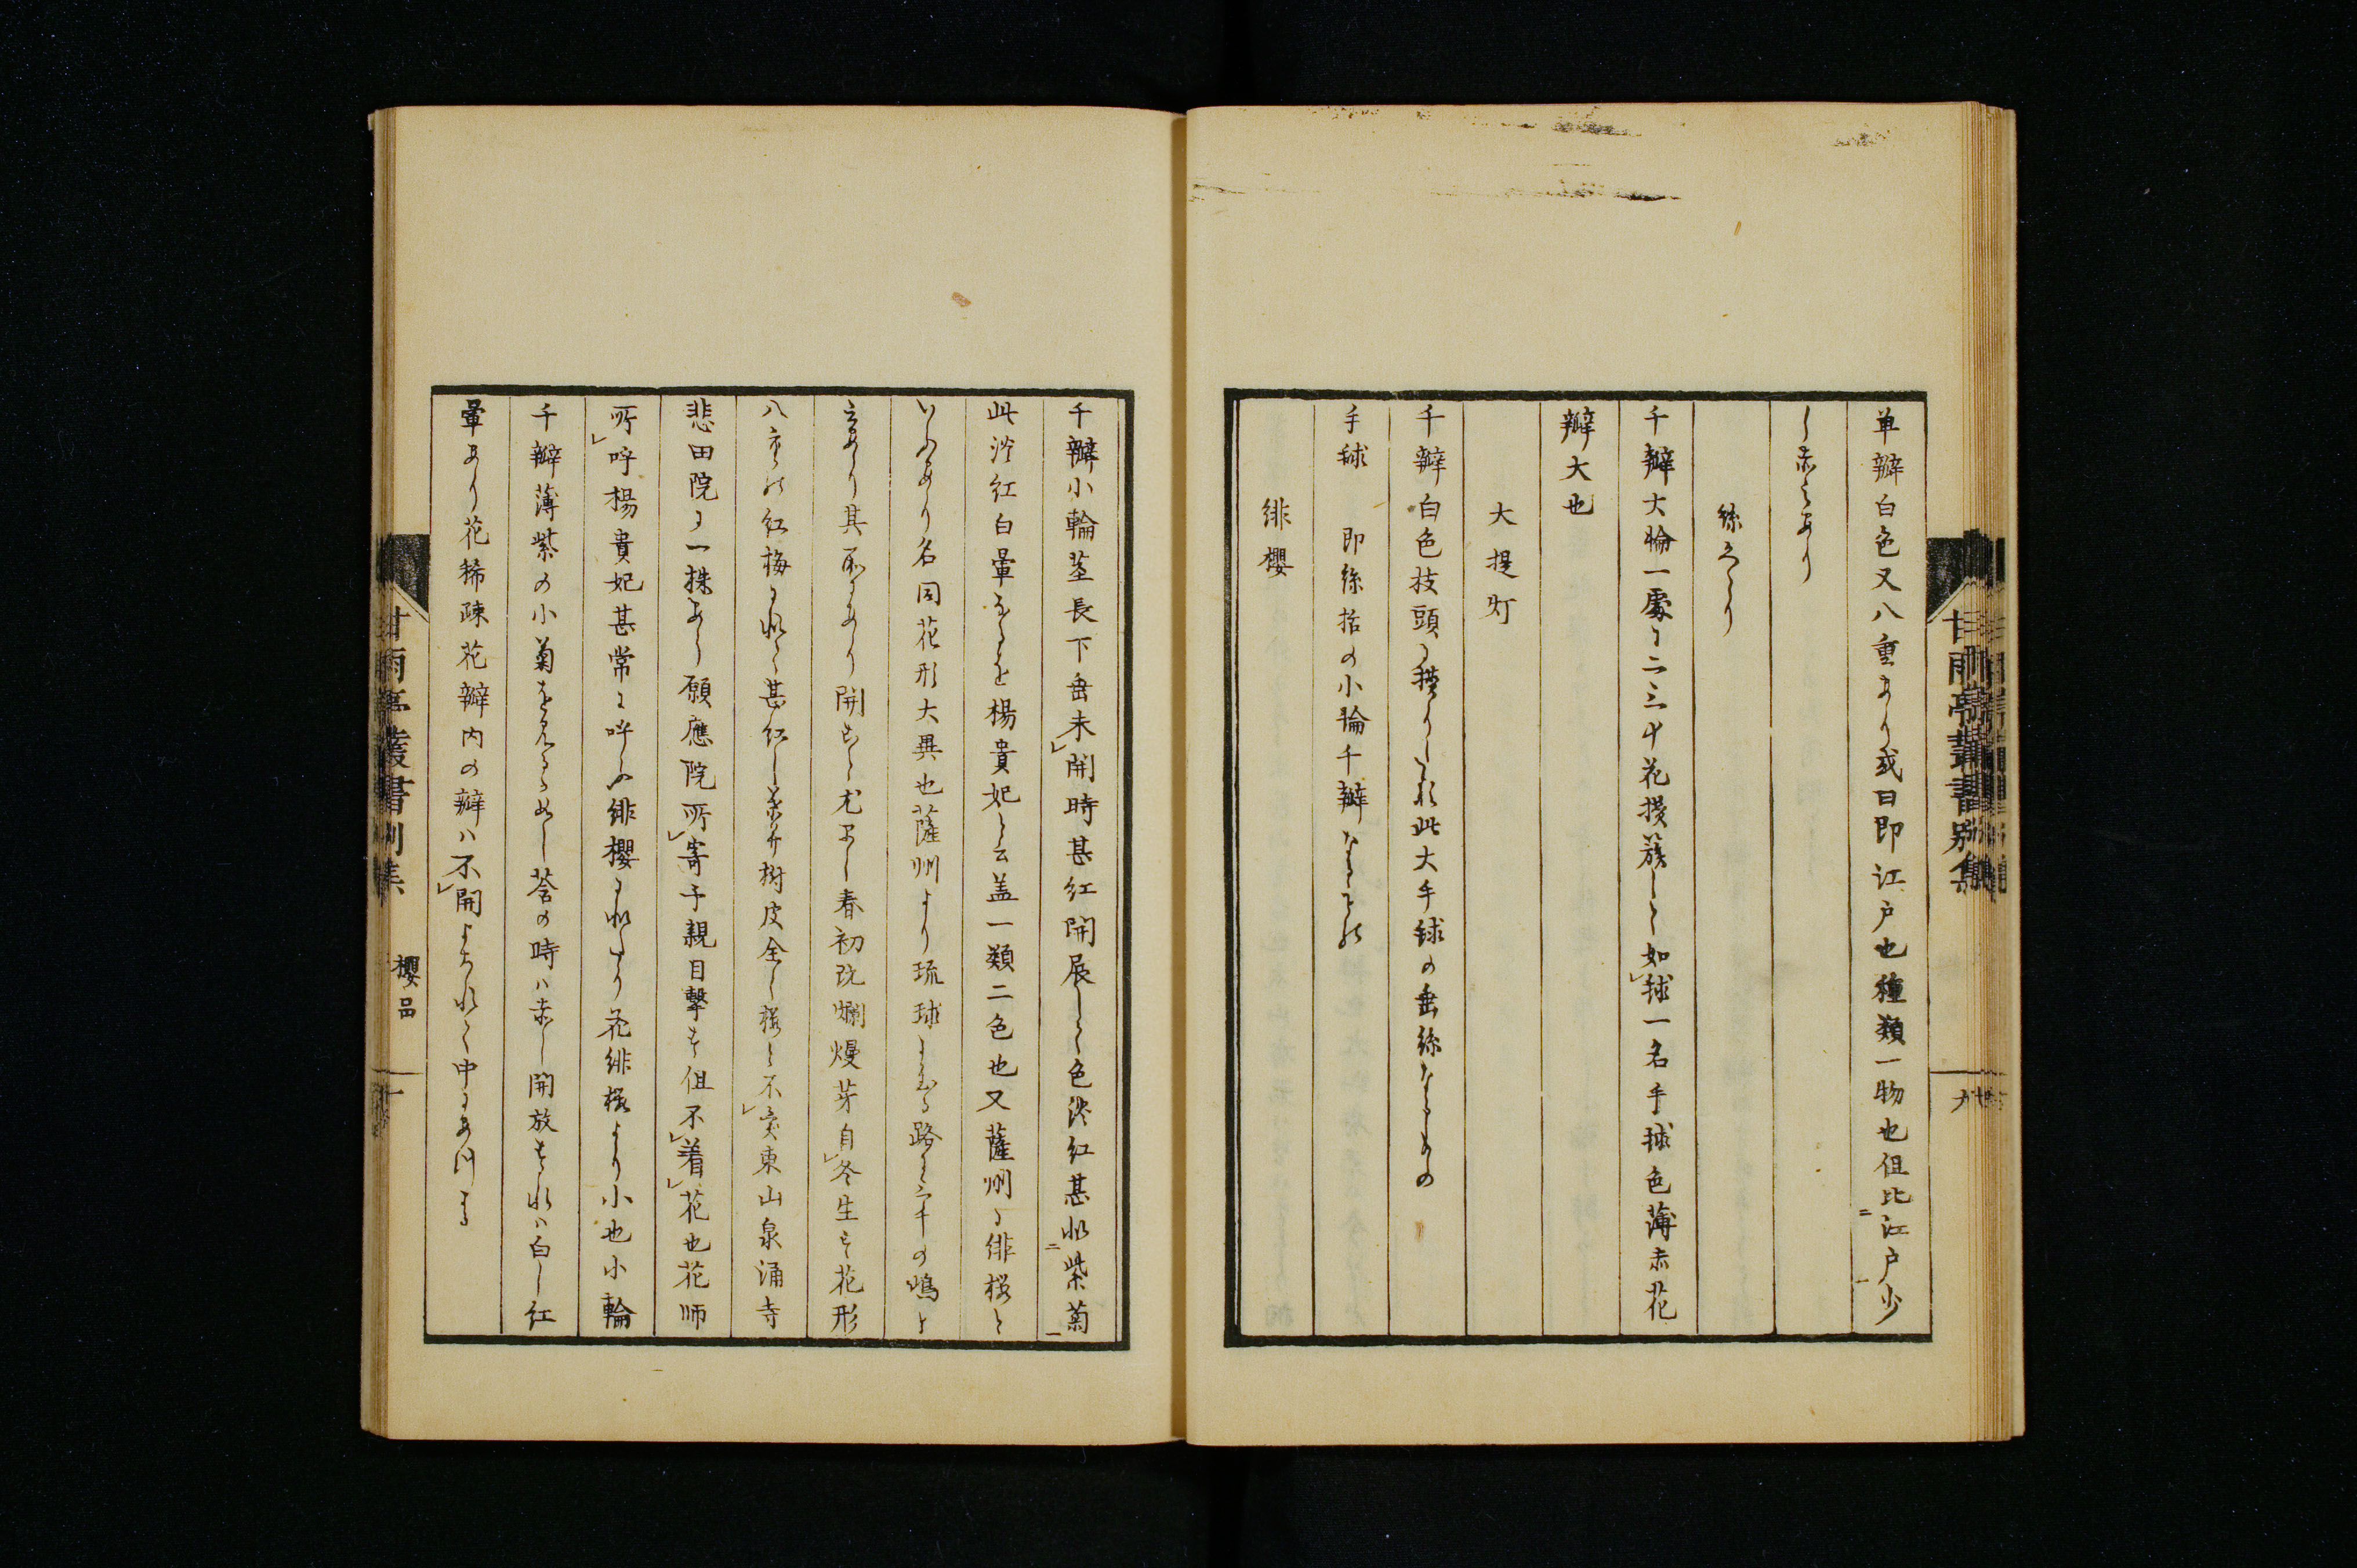 単瓣白色又八重あり或曰即江戸也種類一物也但比江戸少
し赤みあり
絲くゝり
千瓣大輪一處に二三十花攅簇して如毬一名手毬色薄赤花
瓣大也
大提灯
千瓣白色枝頭に攅り此大手毬の垂絲なるもの
手毬　即絲括の小輪千瓣なるもの
緋櫻
千瓣小輪莖長下垂未開時甚紅開展して色淡紅甚似紫菊
此淡紅白暈なるを楊貴妃と云盖一類二色也又薩州に緋桜と
いふあり名同花形大異也薩州より琉球にいたる路に千の嶋と
云あり其所にあり開く尤早し春初既爛熳芽自冬生す花形
八重の紅梅に似て甚紅し葉并樹皮全く桜と不異東山泉涌寺
悲田院に一株あり願應院所寄予親目撃す但不着花也花師
所呼楊貴妃甚常に呼ふ緋櫻に似たり花緋桜より小也小輪
千瓣薄紫の小菊を見るか如し莟の時ハ赤し開放すれハ白し紅
暈あり花稀疎花瓣内の瓣ハ不開よられて中にあつまる
甘雨亭叢書別集
九
甘雨亭叢書別集　櫻品　十